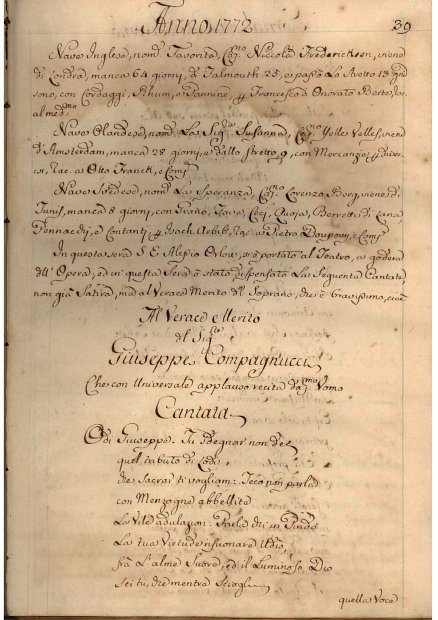 Anno 1772
39
Nave Inglese, nom.ta Favorita, Cap.no Niccola Frederickson, viene
di Londra, manca 64 giorni, di Falmouth 25, e passò lo stretto 13 gni
sono, con Cordaggi, Rhum, e Tannino, p Francesco Onorato Berte, rac.
al med.mo
Nave Olandese, nom.ta La Sig.ra Susanna, Cap.no Yelle Velles, viene
d'Amsterdam, manca 28 giorni, e dallo stretto 9, con Mercanzie p diver
si, rac. a Otto Franck, e Comp.
Nave Svedese, nom.ta La Speranza, Cap.no Lorenzo Borg, viene di
Tunis, manca 8 giorni, con Grano, Fave, Ceci, Quoja, Berretti di Lana
Pennacchi, e Contanti p Bach. Arbib, rac. a Pietro Doupouy, e Comp.
In questa sera S. E. Alessio Orlow, si è portato al Teatro, a godere
dell' Opera, ed in questa Sera è stato dispensato la seguente Cantata,
non già Satira, ma al Verace Merito del Soprano, che è bravissimo, cioè
Al Verace Merito
del Sig.re
Giuseppe Compagnucci
Che con Universale applauso recita da p.mo Uomo
Cantata
Odi Giuseppe. Tu sdegnar non dei
quel tributo di Lodi
che sacrar ti vogliam: Teco non parla
con Menzogne abbellite
La Vile adulazion: Parla chi in Pindo
La tua Virtude risuonare Udio,
frà L'alme Suore, ed il Luminoso Dio
Sei tu, che mentre Sciogli
quella Voce